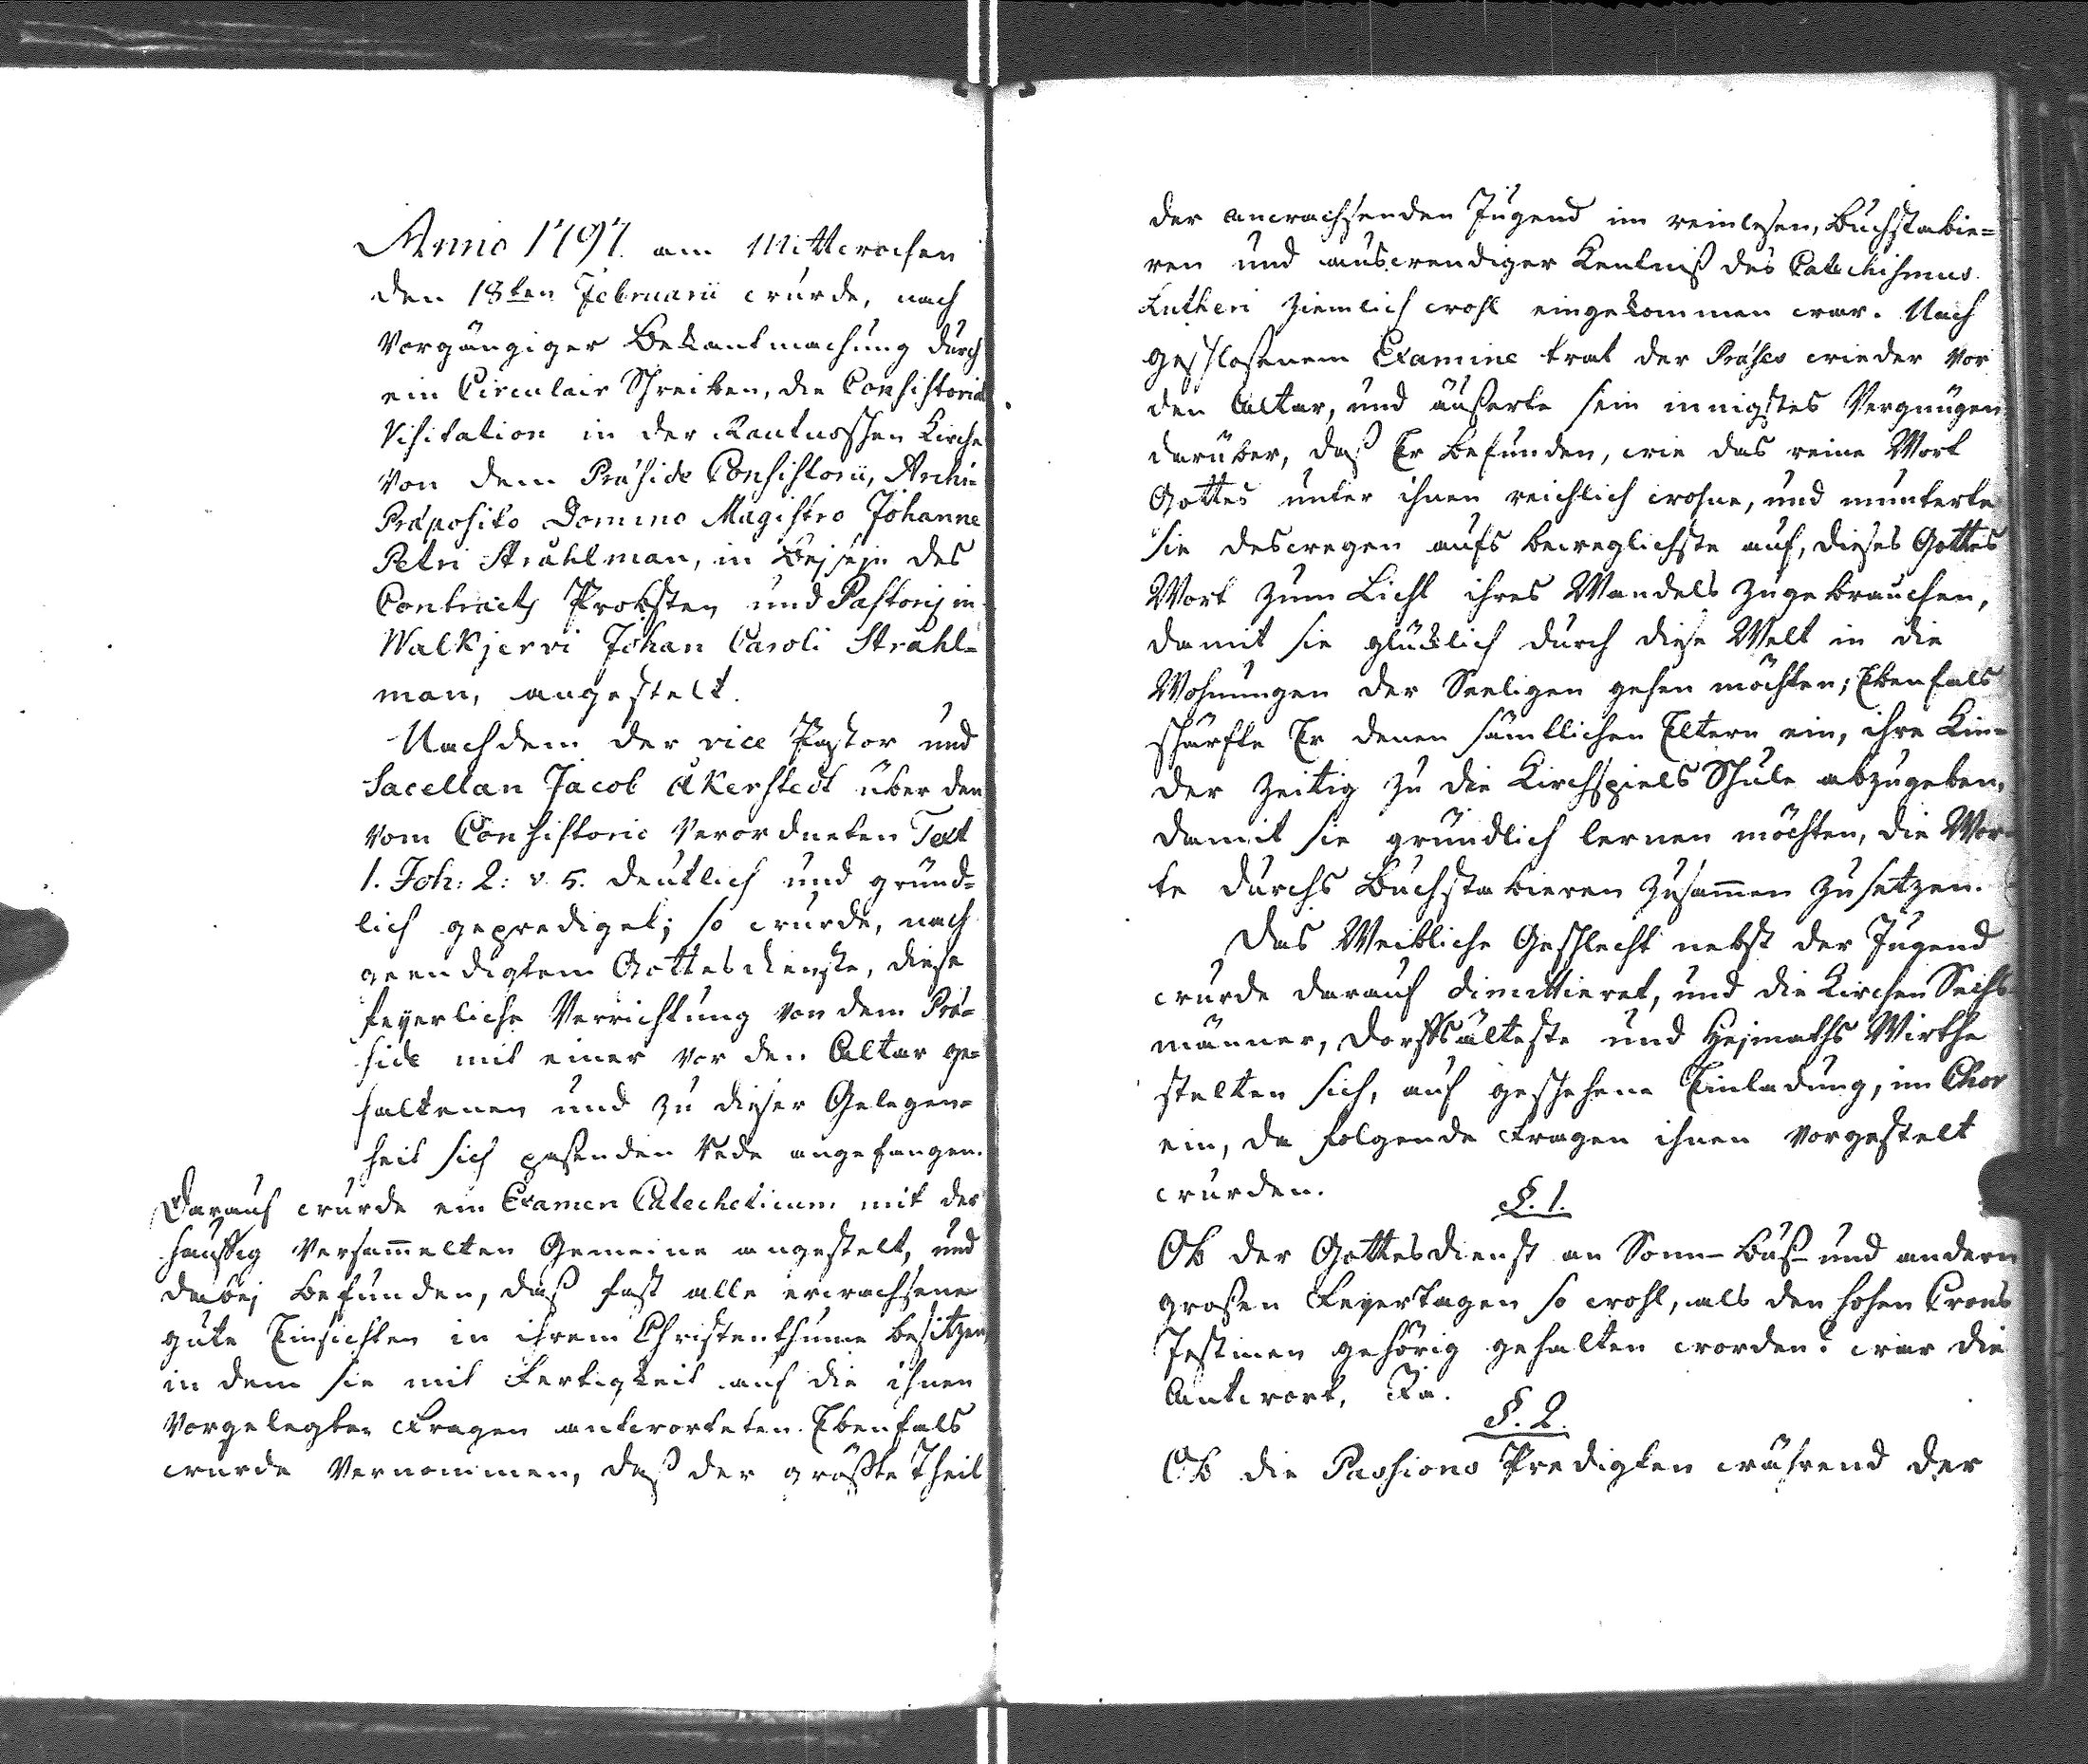 Anno 1797. am Mittwochen
den 18ten Februarii wurde, nach
vorgängiger Bekantmachung durch
ein Circulair Schreiben, die Consistorial
Visitation in der Rautusschen Kirche
von dem Präside Consistorii, Archi-
Präposito Domino Magistro Johanne
Petri Stråhlman, in Bejsejn des
Contracts Probsten und Pastoris in
Walkjervi Johan Caroli Strahl=
man, angestelt.
Nachdem der vice Pastor und
Sacellan Jacob Åkerstedt über den
vom Consistorio verordneten Text
1. Joh: 2: v. 5. deutlich und gründ=
lich geprediget; so wurde, nach
geendigtem Gottesdienste, diese
feyerliche Verrichtung von dem Prä=
side mit einer vor den Altar ge=
haltenen und zu dieser Gelegen=
heit sich paßenden Rede angefangen.
Darauf wurde ein Examen Catecheticum mit der
häuffig versam̄elten Gemeine angestelt, und
dabej befunden, daß fast alle erwachsene
gute Einsichten in ihrem Christenthume besitzen,
in dem sie mit Fertigkeit auf die ihnen
vorgelegten Fragen antworteten. Ebenfals
wurde vernommen, daß der größte Theil
der anwachsenden Jugend im reinlesen, Buchstabie=
ren und auswendiger Kentniß des Catechismus
Lutheri ziemlich wohl eingekommen war. Nach
geschloßenem Examine trat der Präses wieder vor
den Altar, und äußerte sein innigstes Vergnügen
darüber, daß Er befunden, wie das reine Wort
Gottes unter ihnen reichlich wohne, und munterte
sie deswegen aufs beweglichste auf, dieses Gottes
Wort zum Licht ihres Wandels zugebrauchen,
damit sie glüklich durch diese Welt in die
Wohnungen der Seeligen gehen möchten; Ebenfals
schärfte Er denen sämtlichen Eltern ein, ihre Kin=
der zeitig zu die Kirchspiels Schule abzugeben,
damit sie gründlich lernen möchten, die Wor=
te durchs Buchstabieren zusam̄en zu setzen.
Das Weibliche Geschlecht nebst der Jugend
wurde darauf dimittieret, und die Kirchen Sechs=
männer, Dorffsälteste und Hejmaths Wirthe
stelten sich, auf geschehene Einladung, im Chor
ein, da folgende Fragen ihnen vorgestelt
wurden.
§. 1.
Ob der Gottesdienst an Sonn- Buß- und andern
großen Feyertagen so wohl, als den hohen Crons
Festinen gehörig gehalten worden? war die
Antwort, Ja.
§. 2.
Ob die Passions Predigten während der